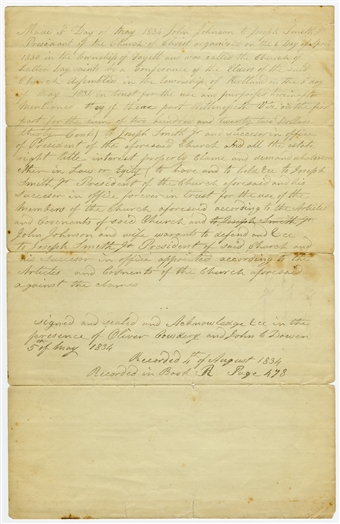 Made 5th Day of May 1834 John Johnson to Joseph Smith Jr
President of the Church of Christ organized on the 6 day of April
1830 in the township of Fayette and now called the Church of
Latter Day saints by a conference of the Elders of the said
Church assembled in the township of Kirtland in the 3 day
May 1834 in trust for the use and purposes hereinafter
mentioned of the part Witnesseth Viz the first
part for the sum of two hundred and twenty two Dollars
thirty Cents to Joseph Smith Jr and successor in office
of President of the aforesaid Church all the estate
right title interest property claim and demand whatsoever
in Law or Eqity to have and to hold &c to Joseph
Smith Jr President of the Church aforesaid and his
successor in office forever in trust for the use of the
members of the Church aforesaid according to the articles
and Covenants of said Church and to Joseph Smith Jr
John Johnson and wife warants to defend and &c
to Joseph Smith Jr President of said Church and
his successor in office appointed according to the
Articles and Covenants of the Church aforesaid
against the claims
signed and sealed and Acknowledge &c in the
presence of Oliver Cowdery and John C Dowen
5th of May 1834
Recorded 4th of August 1834
Recorded in Book R Page 478